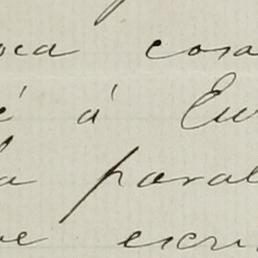 oca cosa
é á Eu
la paral
ve escri